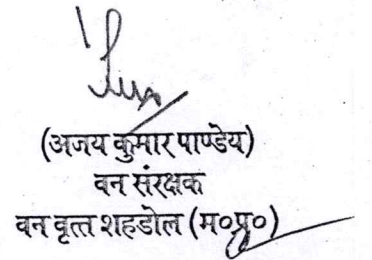 (अजय कुमार पाण्डेय)
वन संरक्षक
वन वृत्त शहडोल (म०प्र०)